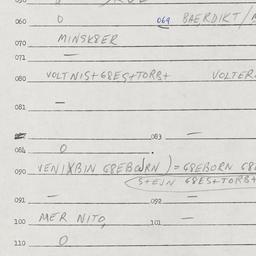 060 0 069 BAERDIKT/
070 MINSK8ER
071 —
080 VOLTNIS+G8ES+TORB+ VOLTER
081 —
083 —
084 0
090 VENIXBIN G8EBORN)=G8EBORN G8E
S+EIN G8ES+TORB+
091 — 092 —
100 MER NITO, 101 —
110 0